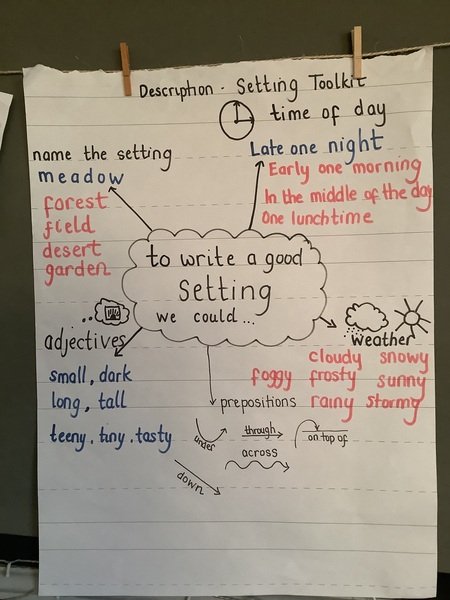 Description - Setting Toolkit
time of day
Late one night
Early one morning
In the middle of the day
One lunchtime
name the setting
meadow
forest
field
desert
garden
to write a good
setting
we could...
adjectives
small, dark
long, tall
teeny, tiny, tasty
weather
cloudy snowy
foggy frosty sunny
rainy stormy
prepositions
under
through
on top of
across
down